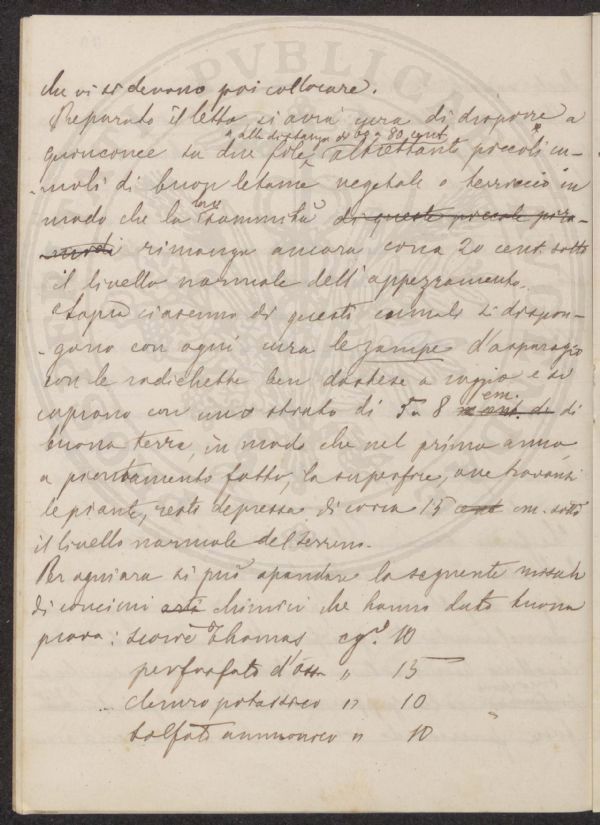 che vi si devono poi collocare.
Preparato il letto si avrà cura di disporre a
alla distanza di 60 a 80 cent.
quinconce su due file altrettanti piccoli cu-
-muli di buon letame vegetale o terriccio in
loro
modo che la sommità di queste piccole pira-
-midi rimanga ancora circa 20 cent. sotto
il livello normale dell'appezzamento.
Sopra ciascuno di questi cumuli si dispon-
-gano con ogni cura le zampe d'asparagio
con le radichette ben distese a raggio e si
cm.
coprono con uno strato di 5 a 8 cent. di di
buona terra, in modo che nel primo anno,
a piantamento fatto, la superfice, ove trovansi
le piante, resti depressa di circa 15 cent cm. sotto
il livello normale del terreno.
Per ogni ara si può spandere la seguente miscela
di concimi chimici che hanno dato buona
prova: scorie Thomas cg.i 10
perfosfato d'ossa " 15
cloruro potassico " 10
solfato ammonico " 10